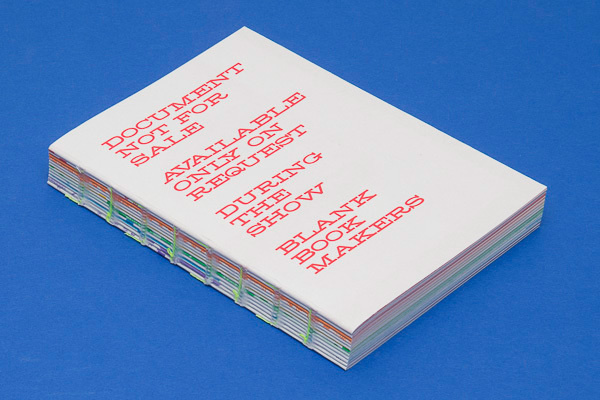 DOCUMENT
NOT FOR
SALE
AVAILABLE
ONLY ON
REQUEST
DURING
THE
SHOW
BLANK
BOOK
MAKERS